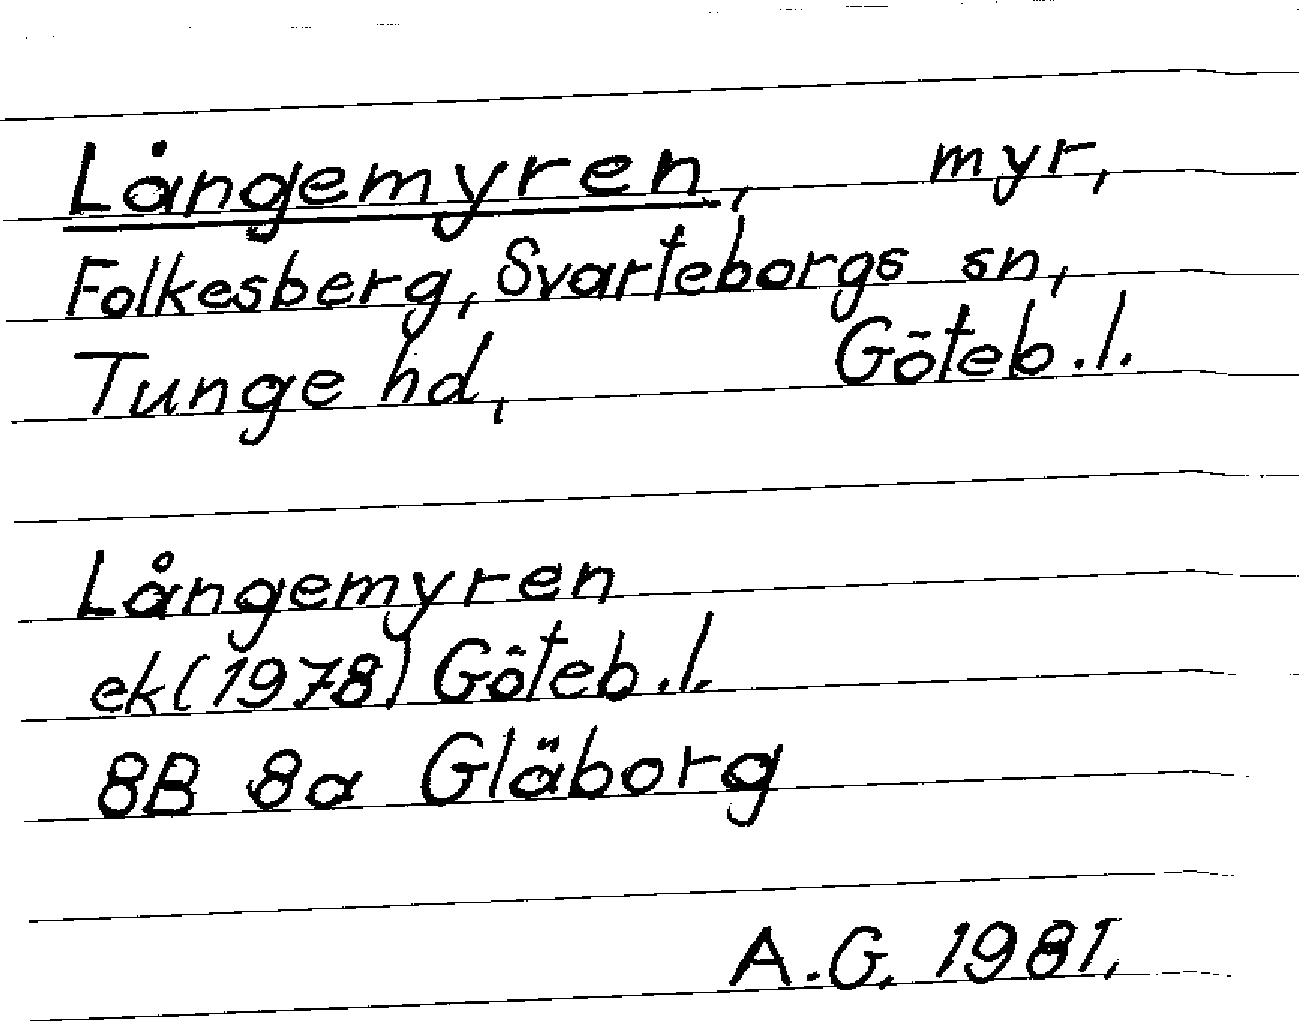 Långemyren, myr,
Folkesberg, Svarteborgs sn,
Tunge hd, Göteb.l.
Långemyren
ek(1978) Göteb.l.
8B 8a Gläborg
A.G. 1981.